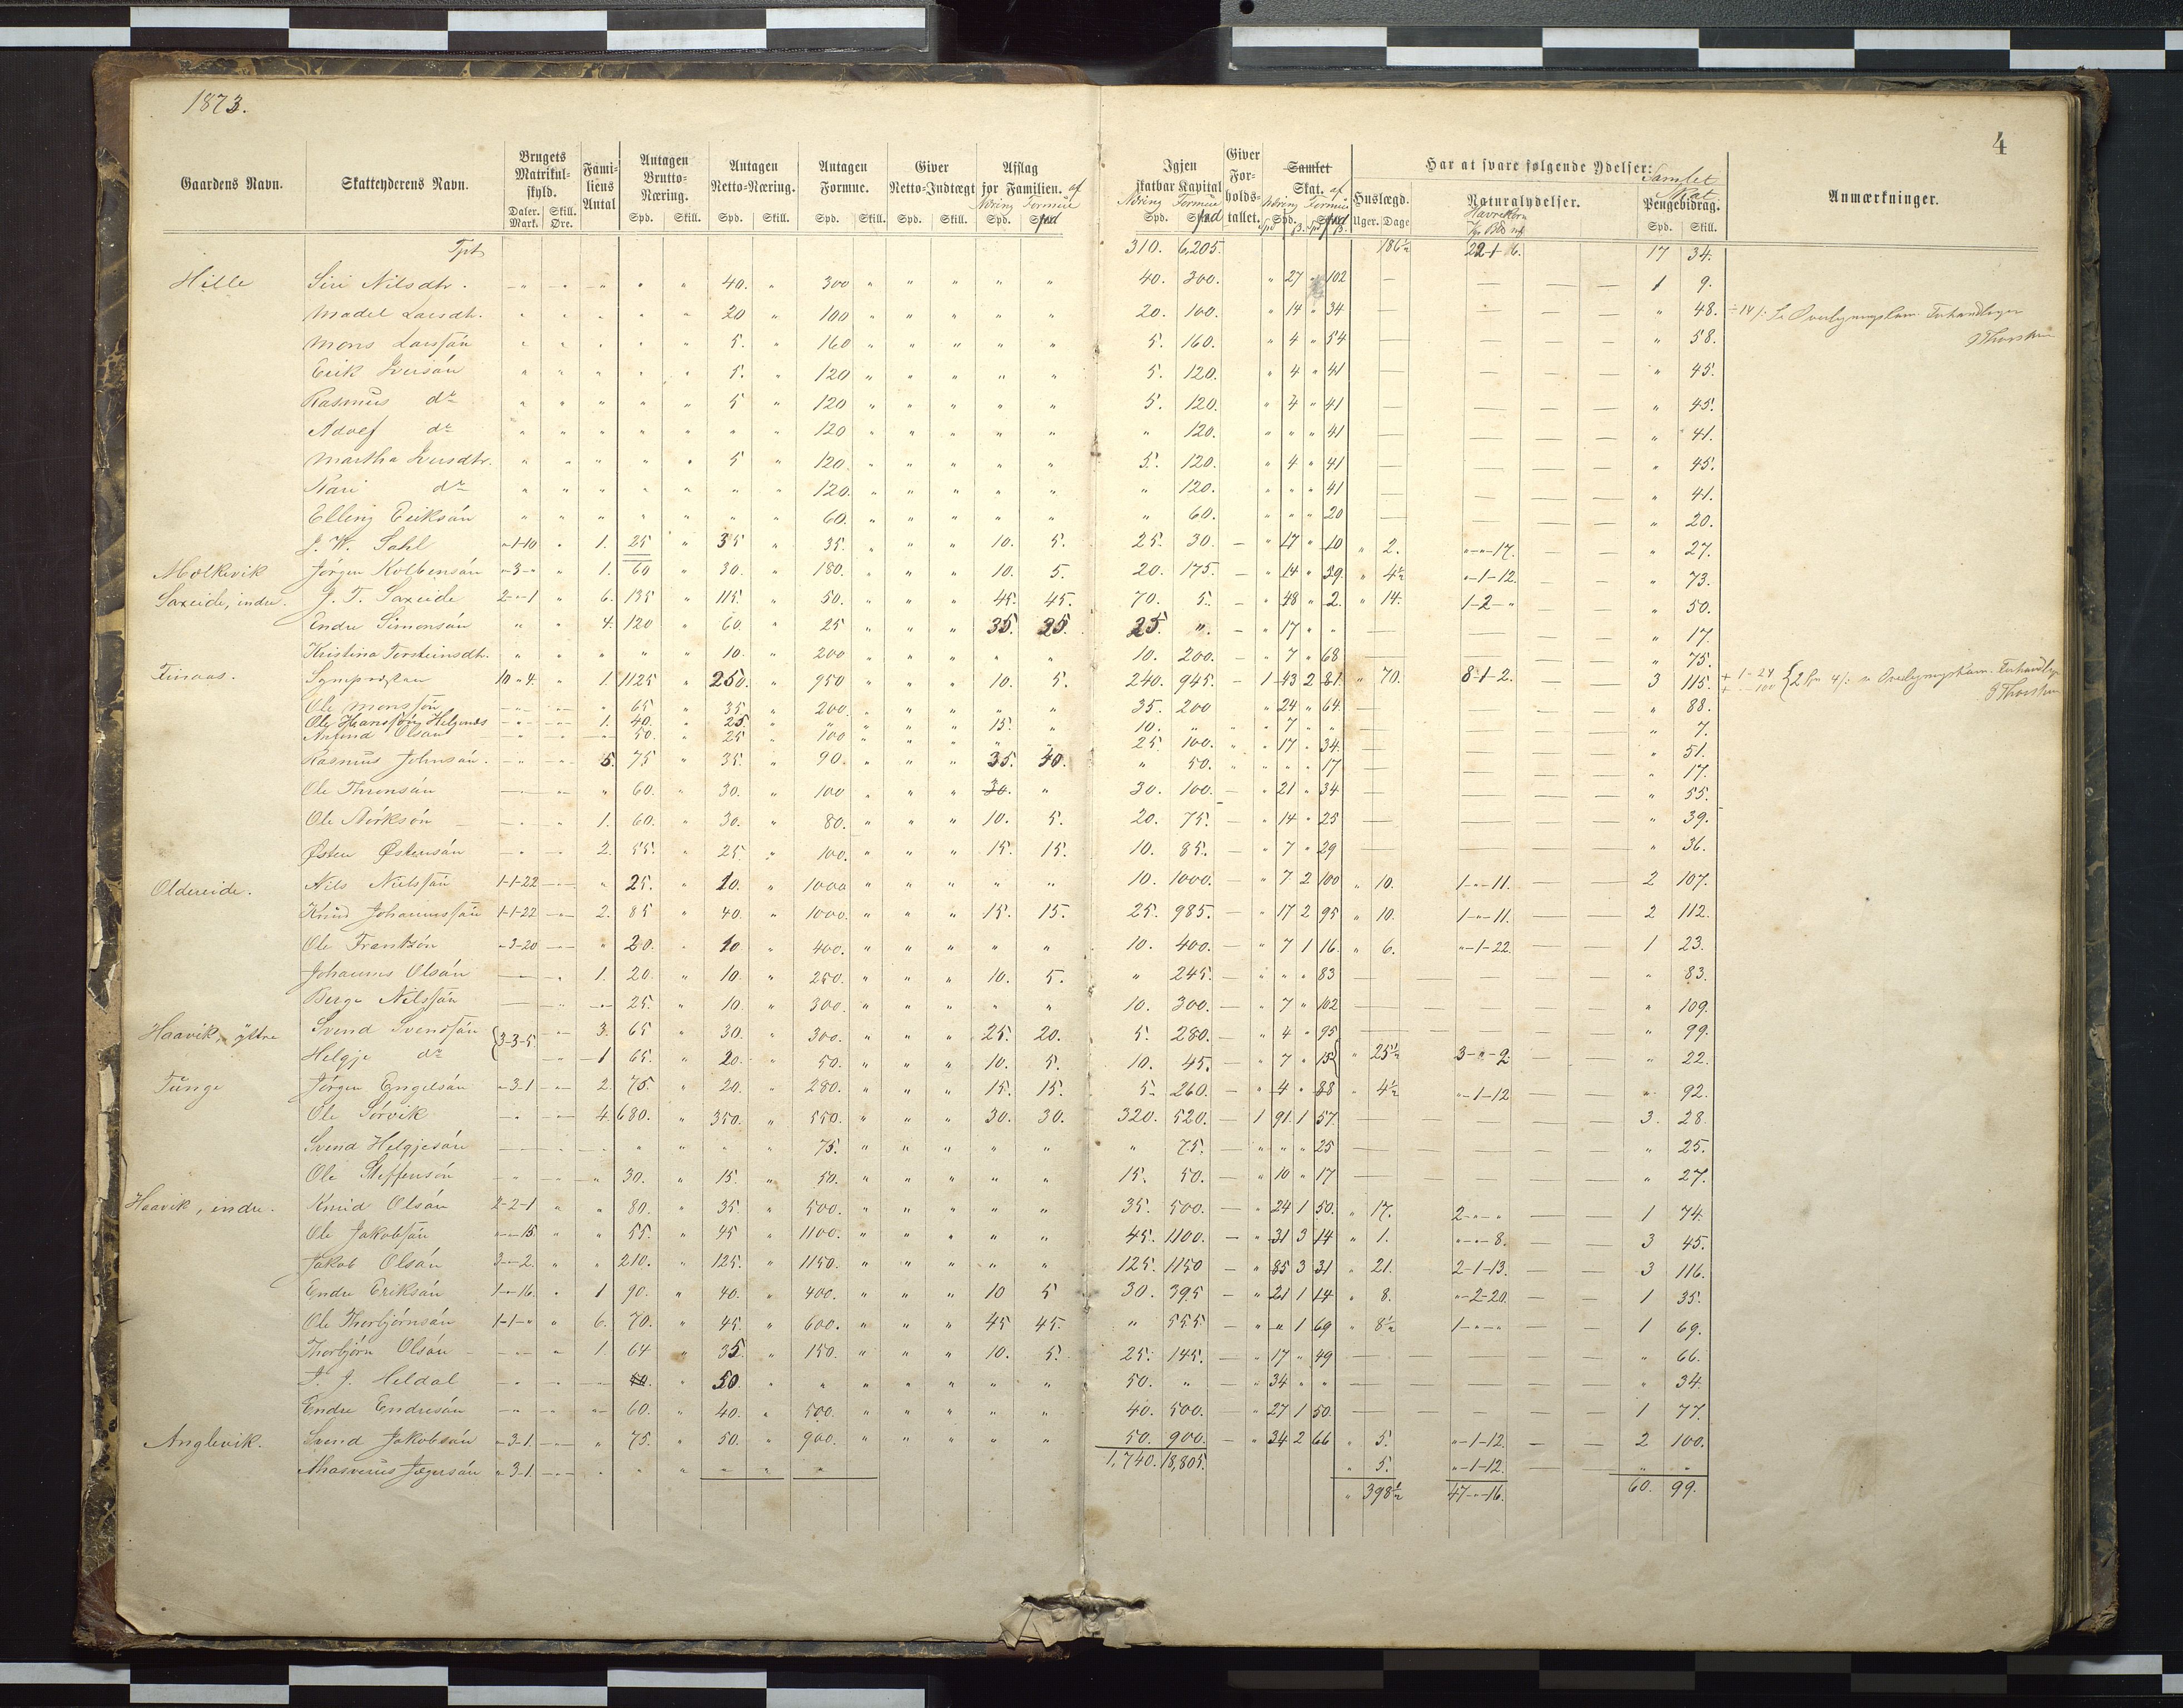 1873.
4
Gaardens Navn. Skatteyderens Navn. Brugets Matrikulskyld. Daler. Mark. Skill. Øre. Familiens Antal Antagen Brutto-Næring. Spd. Skill. Antagen Netto-Næring. Spd. Skill. Antagen Formue. Spd. Skill. Giver Netto-Indtægt Spd. Skill. Afslag for Familien. af Næring Formue Spd. Igjen skatbar Kapital Næring Formue Spd. Giver Forholdstallet. Samlet Skat. af Næring Formue Har at svare følgende Ydelser: Huslægd. Uger. Dage Naturalydelser. Havrekorn Samlet Skat Pengebidrag. Spd. Skill. Anmærkninger.
Tpt 310. 6,205. 186½ 22-1-6. 17 34.
Hille Siri Nilsdtr. 40. " 300 " " " " " 40. 300. " 27 " 102 1 9.
Madel Larsdtr. 20 " 100 " " " " " 20. 100. " 14 " 34 " 48.
Mons Larssøn 5. " 160 " " " " " 5. 160. " 4 " 54 " 58.
Erik Iversøn 5. " 120 " " " " " 5. 120. " 4 " 41 " 45.
Rasmus do 5 " 120 " " " " " 5. 120. " 4 " 41 " 45.
Adolf do " " 120 " " " " " " 120. " " " 41 " 41.
Martha Iversdtr. 5 " 120. " " " " " 5. 120. " 4 " 41 " 45.
Kari do " " 120. " " " " " " 120. " " " 41 " 41.
Elling Eriksøn " " 60. " " " " " " 60. " " " 20 " 20.
J. W. Sahl "-1-10 " 1. 25 " 35 " 35. " " " 10. 5. 25. 30. " 17 " 10 " 2. "-"-17. " 27.
Mælkevik Jørgen Kolbensøn "-3-" " 1. 60 " 30. " 180. " " " 10. 5. 20. 175. " 14 " 59. " 4½ "-1-12. " 73.
Saxeide, indre. J. T. Saxeide 2-"-1 " 6. 135 " 115. " 50. " " " 45. 45. 70. 5. " 48 " 2. " 14. 1-2-" " 50.
Endre Simonsøn " " 4. 120 " 60. " 25 " " " 35. 35. 25. ". " 17 " " " 17.
Kristina Torsteinsdtr. " " " " " 10. " 200 " " " " " 10. 200. " 7 " 68 " 75.
Finaas. 10 " 4. " 1 1125 " 250. " 950 " " " 10. 5. 240. 945. 1 43 2 81. " 70. 8-1-2. 3 115.
Ole Monssøn " 65 " 35 " 200. " " " " " 35. 200 " 24 " 64. " 88.
Ole Hanssøn Helgenæs 1. 40. " 25. " " " " " 15. " 10. " " 7 " " " 7.
Anfind Olsøn " 50. " 25 " 100 " " " " " 25 100. " 17 " 34. " 51.
Rasmus Johnsøn. 5. 75 " 35. " 90. " " " 35. 40. " 50. " " " 17 " 17.
Ole Thronsøn " 60. " 30. " 100 " " " 30. " 30. 100. " 21 " 34 " 55.
Ole 1. 60. " 30. " 80. " " " 10. 5. 20. 75. " 14 " 25 " 39.
Østen Østensøn 2. 55. " 25. " 100. " " " 15. 15. 10. 85. " 7 " 29 " 36.
Oldereide. Nils Nielssøn 1-1-22 " 25. " 10. " 1000 " " " " " 10. 1000. " 7 2 100 " 10. 1-"-11. 2 107.
Knud Johannessøn 1-1-22 2. 85 " 40. " 1000. " " " 15. 15. 25. 985. " 17 2 95 " 10. 1-"-11. 2 112.
Ole Frantsøn "-3-20 " 20. " 10. " 400. " " " " " 10. 400. " 7 1 16. " 6. "-1-22. 1 23.
Johannes Olsøn 1. 20. " 10. " 250. " " " 10. 5. " 245. " " " 83 " 83.
Berge Nilssøn 25. " 10. " 300. " " " " " 10. 300. " 7 " 102 " 109.
Haavik, yttre Svend Svenssøn 3-3-5. 3. 65 " 30. " 300. " " " 25. 20. 5. 280. " 4 " 95 " 25½ 3-"-2 " 99.
Helgje do 1 65. " 20. " 50. " " " 10. 5. 10. 45. " 7 " 15 " 22.
Tunge Jørgen Engelsøn "-3-1 2. 75. " 20. " 280. " " " 15. 15. 5. 260. " 4 " 88 " 4½ "-1-12 " 92.
Ole Sørvik 4. 680. " 350. " 550. " " " 30. 30. 320. 520. 1 91. 1 57. 3. 28.
Svend Helgjesøn " " " " 75. " " " " " " 75. " " " 25 " 25.
Ole Steffensøn " 30. " 15. " 50. " " " " " 15. 50. " 10 " 17 " 27.
Haavik, indre. Knud Olsøn 2-2-1 " " 80. " 35. " 500. " " " " " 35. 500. " 24 1 50. " 17. 2-"-" 1 74.
Ole Jakobsøn "-"-15. " " 55. " 45 " 1100. " " " " " 45. 1100. " 31 3 14 " 1. "-"-8. 3 45.
Jakob Olsøn 3-"-2. " " 210. " 125. " 1150. " " " " " 125. 1150 " 85 3 31 " 21. 2-1-13. 3 116.
Endre Eriksøn 1-"-16. " 1 90. " 40. " 400. " " " 10 5 30. 395 " 21 1 14 " 8. "-2-20. 1 35.
Ole Thorbjørnsøn 1-1-" " 6. 70. " 45. " 600. " " " 45 45. " 555. " " 1 69 " 8½ 1-"-" 1 69.
Thorbjørn Olsøn 1 64 " 35 " 150. " " " 10. 5. 25. 145. " 17 " 49 " 66.
J. Heldal 50. " 50 " " " " " " " 50. " " 34 " " " 34.
Endre Endresøn 60. " 40. " 500. " " " " " 40. 500. " 27 1 50. 1 77.
Anglevik. Svend Jakobsøn "-3-1. " 75. " 50. " 900. " " " " " 50. 900. " 34 2 66 " 5. "-1-12. 2 100.
"-3-1. " 5. "-1-12. " "
1,740. 18,805.
" 398½ 47-"-16. 60. 99.